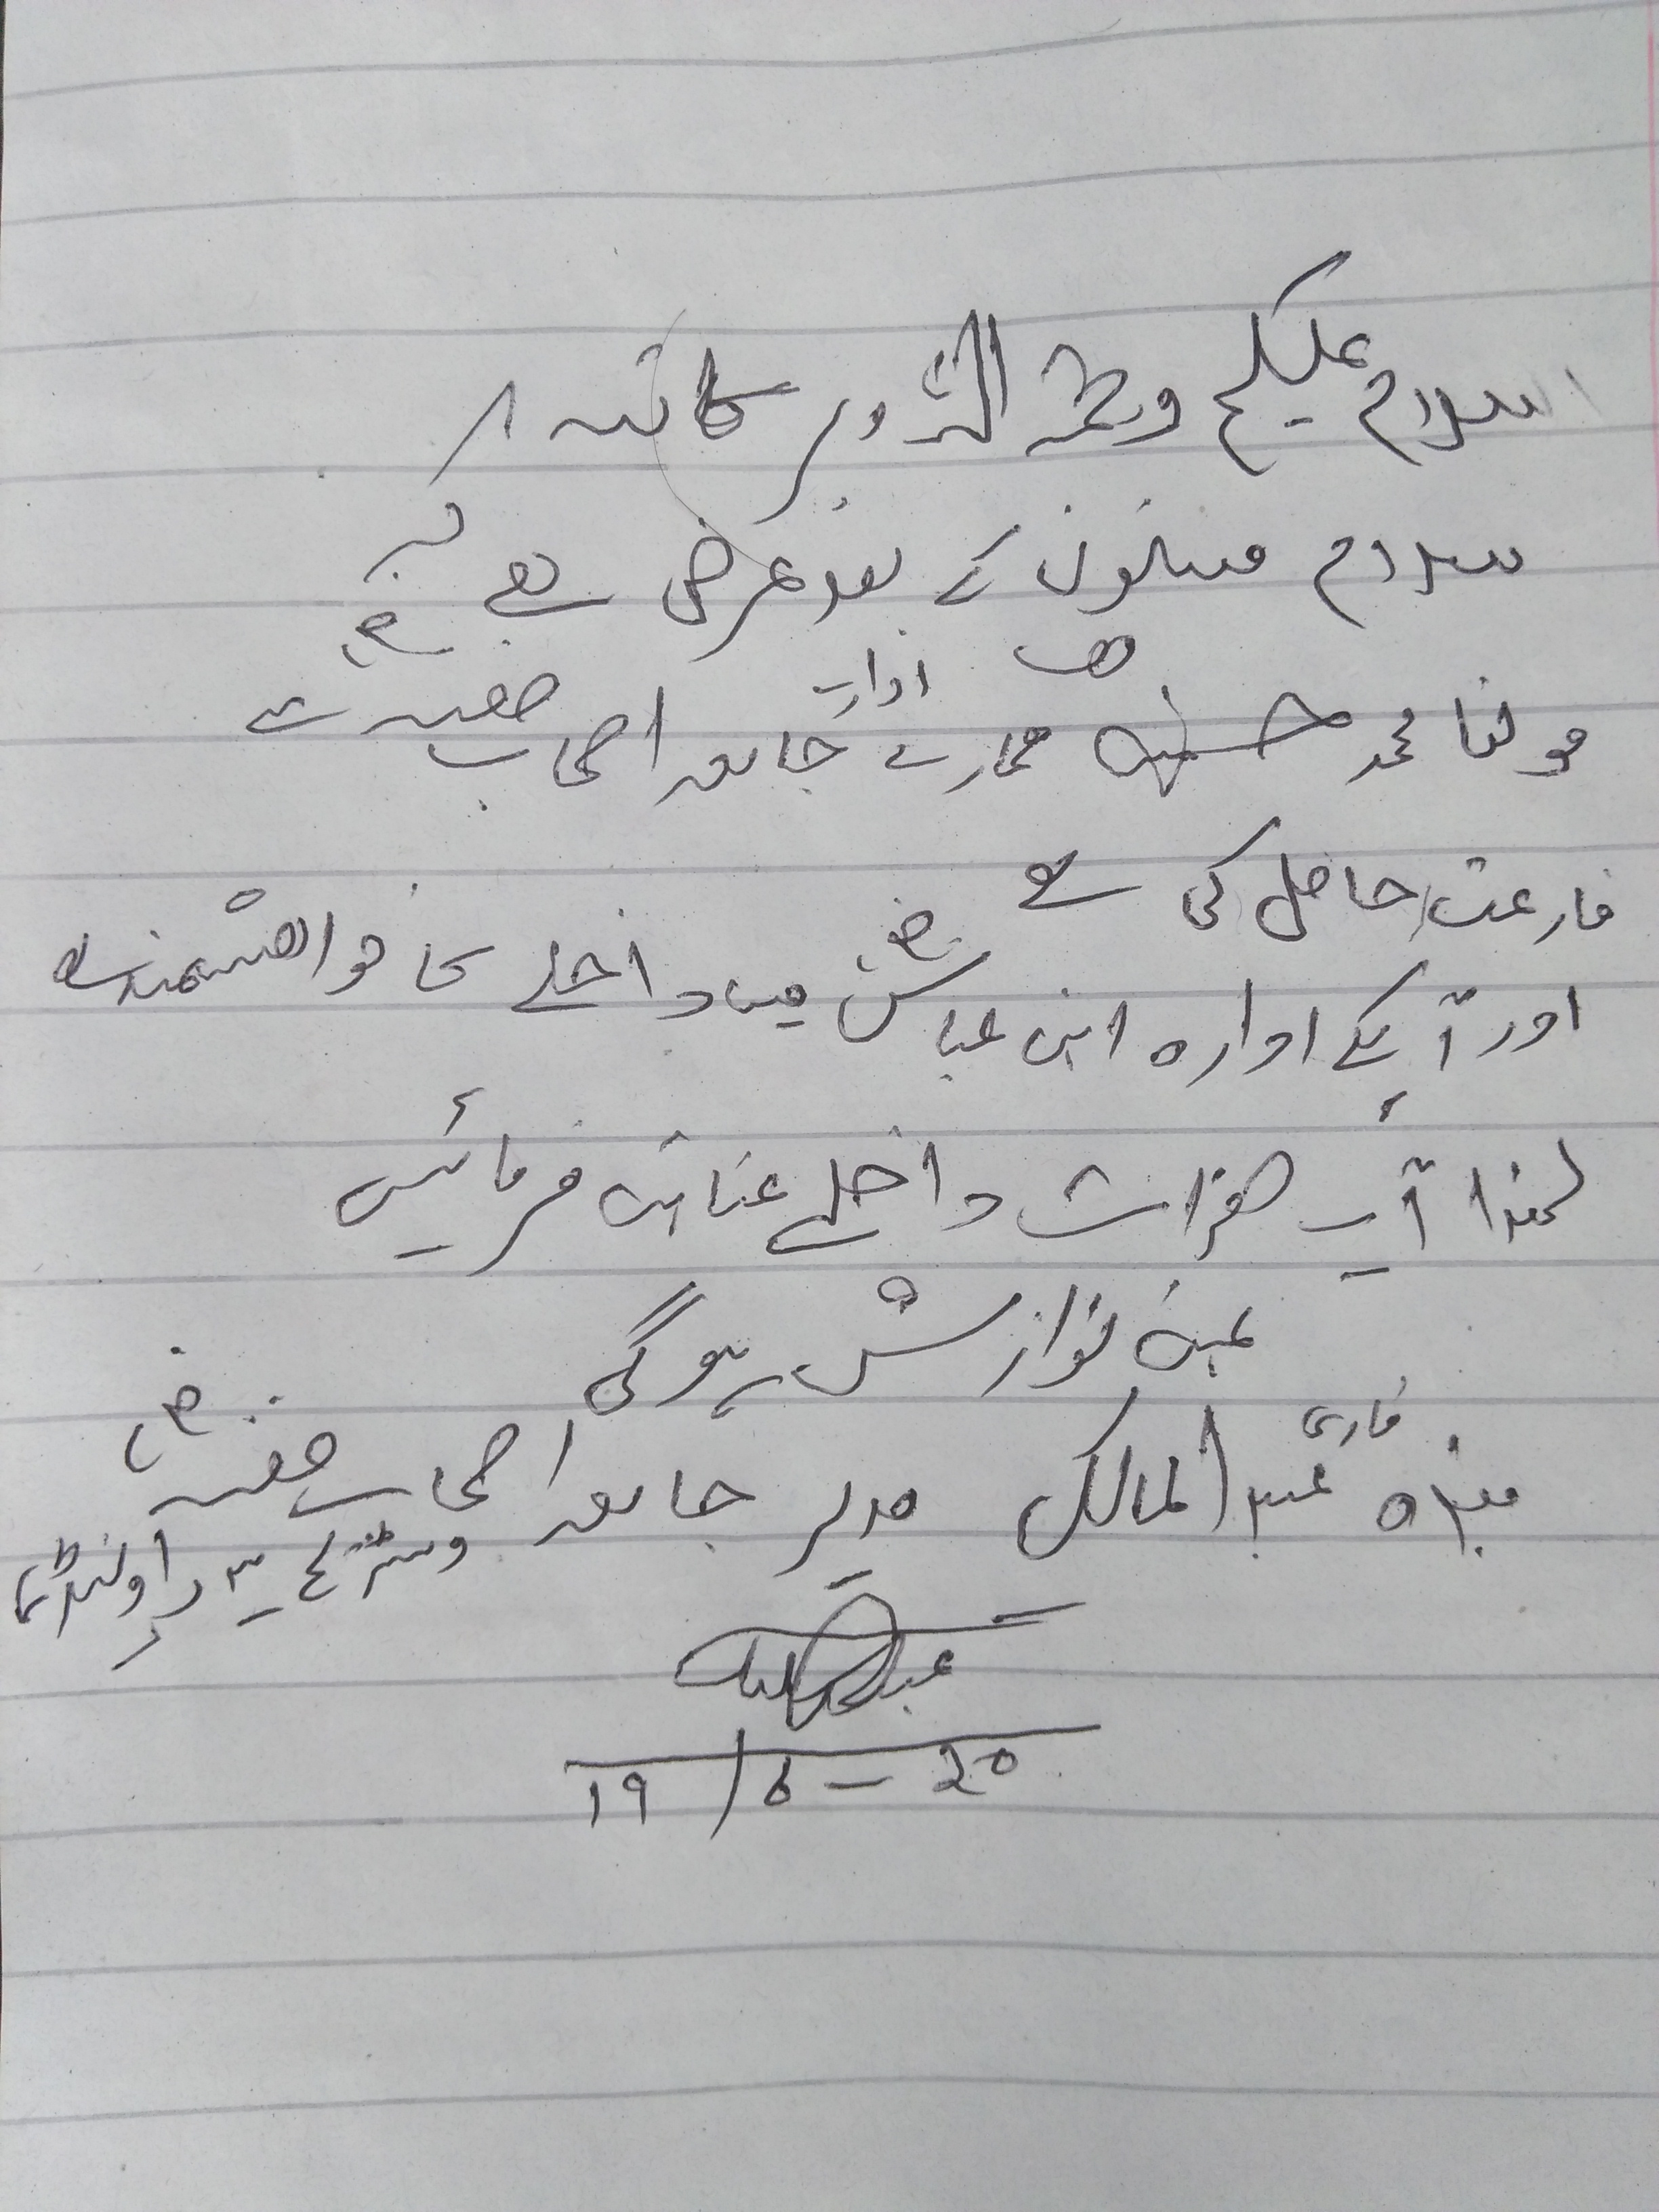 اسلام علیکم ورحمۃ اللہ وبرکاتہ
سلام مسنون کے بعد عرض ہے کہ
مولنا محمد حسین صاحب ھمارے ادارے جامعہ اصحاب صفہ رض سے
فارغت حاصل کی ہے
اور آپکے ادارہ ابن عباس رض میں داخلے کا خواھشمند ہے
لھذا آپ حضرات داخلے عنایت فرمائیں
عین نوازش ہوگی
بندہ قاری عبد المالک مدیر جامعہ اصحاب صفہ رض
راولپنڈی
عبدالمالک
19/6-20